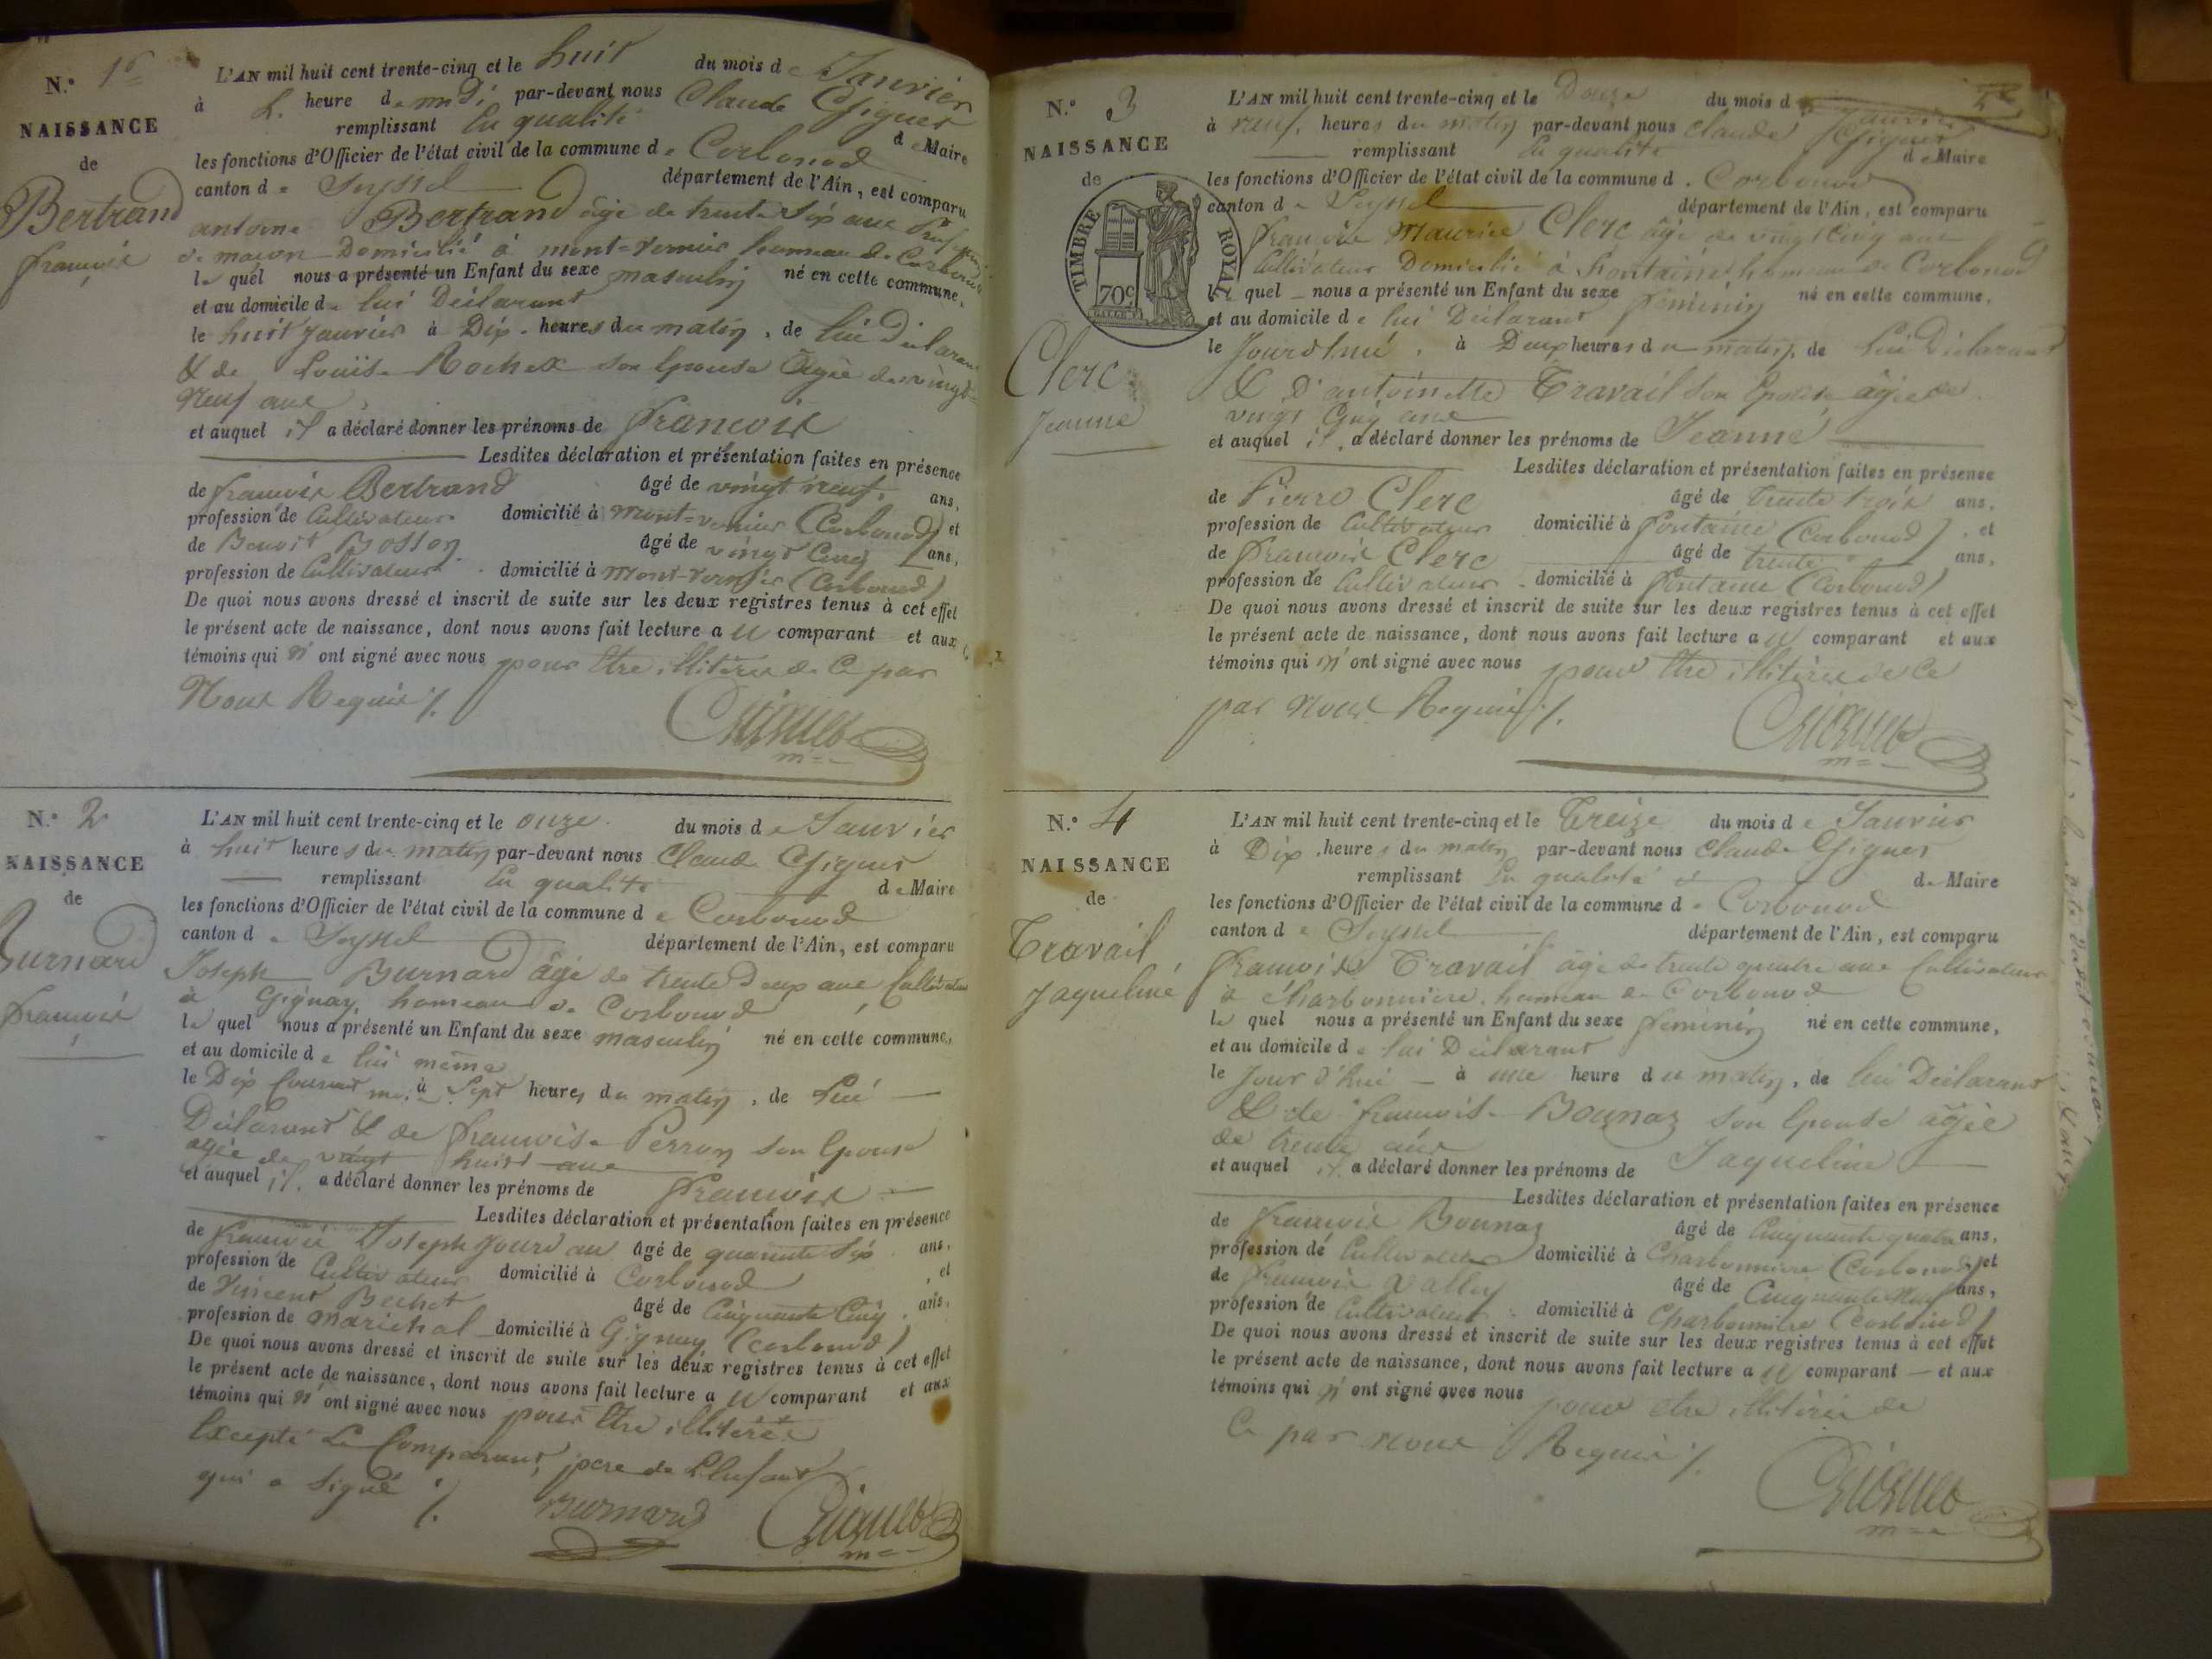 N.º 1er
NAISSANCE
de
Bertrand
françois
L'AN mil huit cent trente-cinq et le huit du mois de Janvier
à heure de midi par-devant nous Claude Gignes
remplissant en qualité de Maire
les fonctions d'Officier de l'état civil de la commune de Corbonod
canton de Seyssel département de l'Ain, est comparu
antoine Bertrand âgé de trente six ans
de maçon Domicilié à mont-vernier hameau de Corbonod
le quel nous a présenté un Enfant du sexe masculin né en cette commune,
et au domicile de lui Déclarant
le huit Janvier à Dix heures du matin, de lui Déclarant
& de Louise Rochex son Epouse âgée de vingt-
Neuf ans
et auquel il a déclaré donner les prénoms de françois
Lesdites déclaration et présentation faites en présence
de françois Bertrand âgé de vingt neuf, ans,
profession de Cultivateur domicilié à mont-vernier (Corbonod) et
de Benoit Bosson âgé de vingt Cinq ans,
profession de Cultivateur domicilié à mont-vernier (Corbonod)
De quoi nous avons dressé et inscrit de suite sur les deux registres tenus à cet effet
le présent acte de naissance, dont nous avons fait lecture a u comparant et aux
témoins qui n'ont signé avec nous pour être illitérés de Ce par
Nous Requis ./.
N.º 2
NAISSANCE
de
Burnard
françois
L'AN mil huit cent trente-cinq et le onze du mois de Janvier
à huit heures du matin par-devant nous Claude Gignes
remplissant en qualité de Maire
les fonctions d'Officier de l'état civil de la commune de Corbonod
canton de Seyssel département de l'Ain, est comparu
Joseph Burnard âgé de trente deux ans Cultivateur
à Gignay hameau de Corbonod
le quel nous a présenté un Enfant du sexe masculin né en cette commune,
et au domicile de lui même
le Dix Courant à Sept heures du matin, de Lui
Déclarant & de françoise Perron son Epouse
agée de vingt huit ans
et auquel il a déclaré donner les prénoms de françois
Lesdites déclaration et présentation faites en présence
de françois Joseph Jourdan âgé de quarante Six ans,
profession de Cultivateur domicilié à Corbonod, et
de Vincent Bechet âgé de Cinquante Cinq ans,
profession de maréchal domicilié à Gignay (Corbonod)
De quoi nous avons dressé et inscrit de suite sur les deux registres tenus à cet effet
le présent acte de naissance, dont nous avons fait lecture a u comparant et aux
témoins qui n'ont signé avec nous pour être illitérés
Excepté Le Comparant, père de L'Enfant
qui a Signé ./. Burnard
N.º 3
NAISSANCE
de
TIMBRE ROYAL
70c
Clerc
Jeanne
L'AN mil huit cent trente-cinq et le Douze du mois de Janvier
à neuf, heures du matin par-devant nous Claude Gignes
remplissant en qualité de Maire
les fonctions d'Officier de l'état civil de la commune de Corbonod
canton de Seyssel département de l'Ain, est comparu
françois Maurice Clerc âgé de vingt Cinq ans
Cultivateur Domicilié à fontaine hameau de Corbonod
le quel nous a présenté un Enfant du sexe féminin né en cette commune,
et au domicile de lui Déclarant
le Jourd'hui, à Deux heures du matin, de lui Déclarant
& D'antoinette Travail son Epouse âgée de
vingt Cinq ans
et auquel il a déclaré donner les prénoms de Jeanne
Lesdites déclaration et présentation faites en présence
de Pierre Clerc âgé de trente trois ans,
profession de Cultivateur domicilié à fontaine (Corbonod), et
de françois Clerc âgé de trente ans,
profession de Cultivateur domicilié à fontaine (Corbonod)
De quoi nous avons dressé et inscrit de suite sur les deux registres tenus à cet effet
le présent acte de naissance, dont nous avons fait lecture a u comparant et aux
témoins qui n'ont signé avec nous pour être illitérés de Ce
par Nous Requis ./.
N.º 4
NAISSANCE
de
Travail
Jaqueline
L'AN mil huit cent trente-cinq et le Treize du mois de Janvier
à Dix heures du matin par-devant nous Claude Gignes
remplissant en qualité de Maire
les fonctions d'Officier de l'état civil de la commune de Corbonod
canton de Seyssel département de l'Ain, est comparu
françois Travail âgé de trente quatre ans Cultivateur
à Charbonnière hameau de Corbonod
le quel nous a présenté un Enfant du sexe féminin né en cette commune,
et au domicile de lui Déclarant
le Jour d'hui à une heure du matin, de lui Déclarant
& de françoise Bounaz son Epouse agée
de trente ans
et auquel il a déclaré donner les prénoms de Jaqueline
Lesdites déclaration et présentation faites en présence
de françois Bounaz âgé de Cinquante quatre ans,
profession de Cultivateur domicilié à Charbonnière (Corbonod) et
de françois Vallin âgé de Cinquante Neuf ans,
profession de Cultivateur domicilié à Charbonnière (Corbonod)
De quoi nous avons dressé et inscrit de suite sur les deux registres tenus à cet effet
le présent acte de naissance, dont nous avons fait lecture a u comparant et aux
témoins qui n'ont signé avec nous pour être illitérés de
Ce par nous Requis ./.